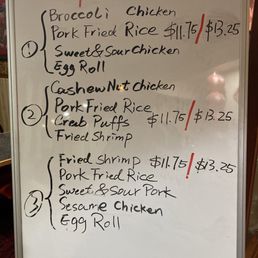 Broccoli Chicken
① Pork Fried Rice $11.75/$13.25
Sweet & Sour Chicken
Egg Roll
Cashew Nut Chicken
② Pork Fried Rice
Crab Puffs $11.75/$13.25
Fried Shrimp
Fried Shrimp $11.75/$13.25
Pork Fried Rice
③ Sweet & Sour Pork
Sesame Chicken
Egg Roll